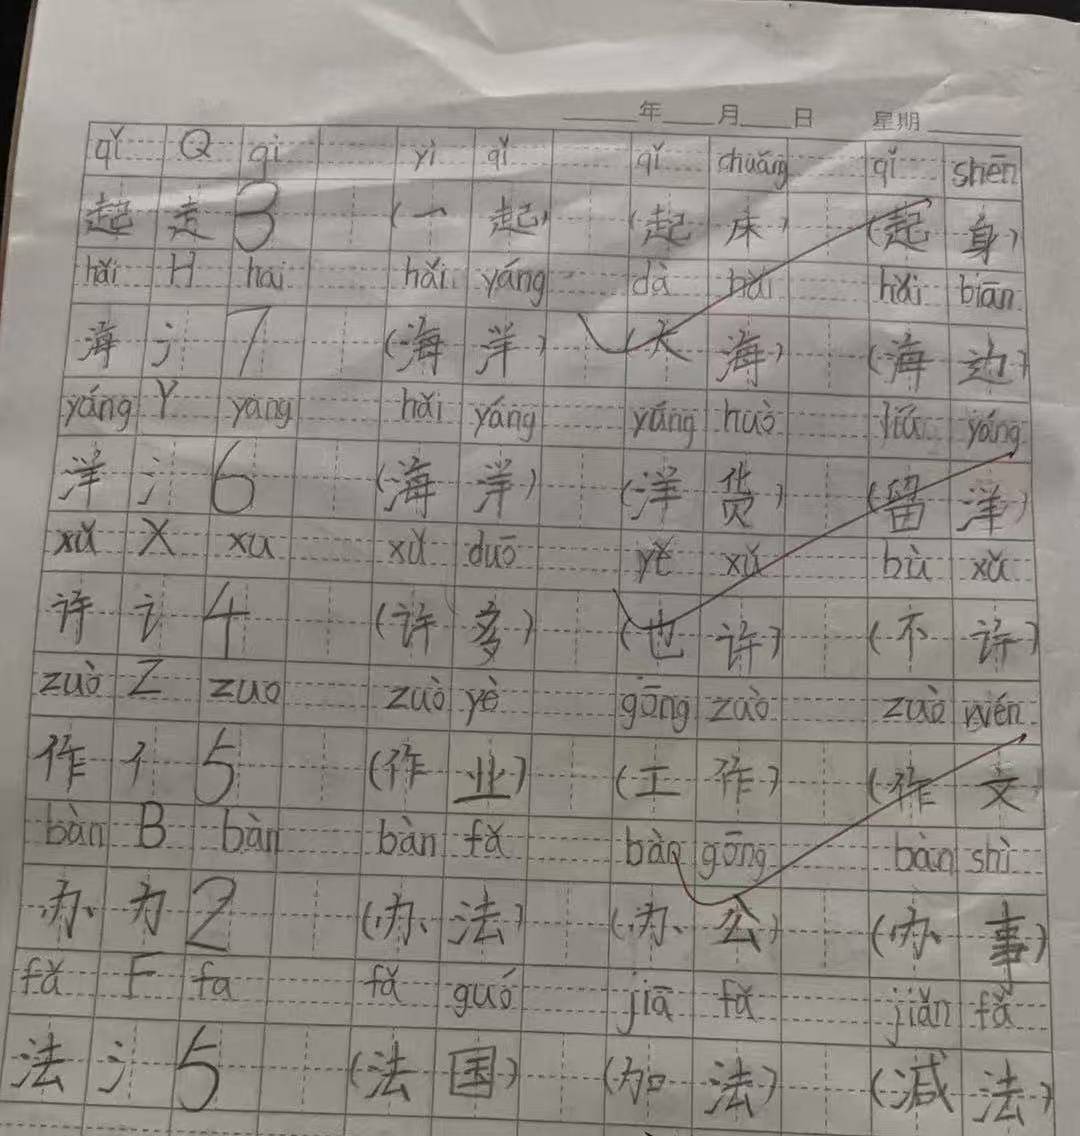 年 月 日 星期
qǐ Q qi yì qǐ qǐ chuáng qǐ shēn
起 走 3 (一 起) (起 床) (起 身)
hǎi H hai hǎi yáng dà hǎi hǎi biān
海 氵 7 (海 洋) (大 海) (海 边)
yáng Y yang hǎi yáng yáng huò liú yáng
洋 氵 6 (海 洋) (洋 货) (留 洋)
xǔ X xu xǔ duō yě xǔ bù xǔ
许 讠 4 (许 多) (也 许) (不 许)
zuò Z zuo zuò yè gōng zuò zuò wén
作 亻 5 (作 业) (工 作) (作 文)
bàn B bàn bàn fǎ bàn gōng bàn shì
办 力 2 (办 法) (办 公) (办 事)
fǎ F fa fǎ guó jiā fǎ jiǎn fǎ
法 氵 5 (法 国) (加 法) (减 法)